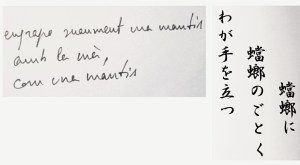 engrapo suaument una mantis
amb la mà,
com una mantis
蟷螂に
蟷螂のごとく
わが手を立つ